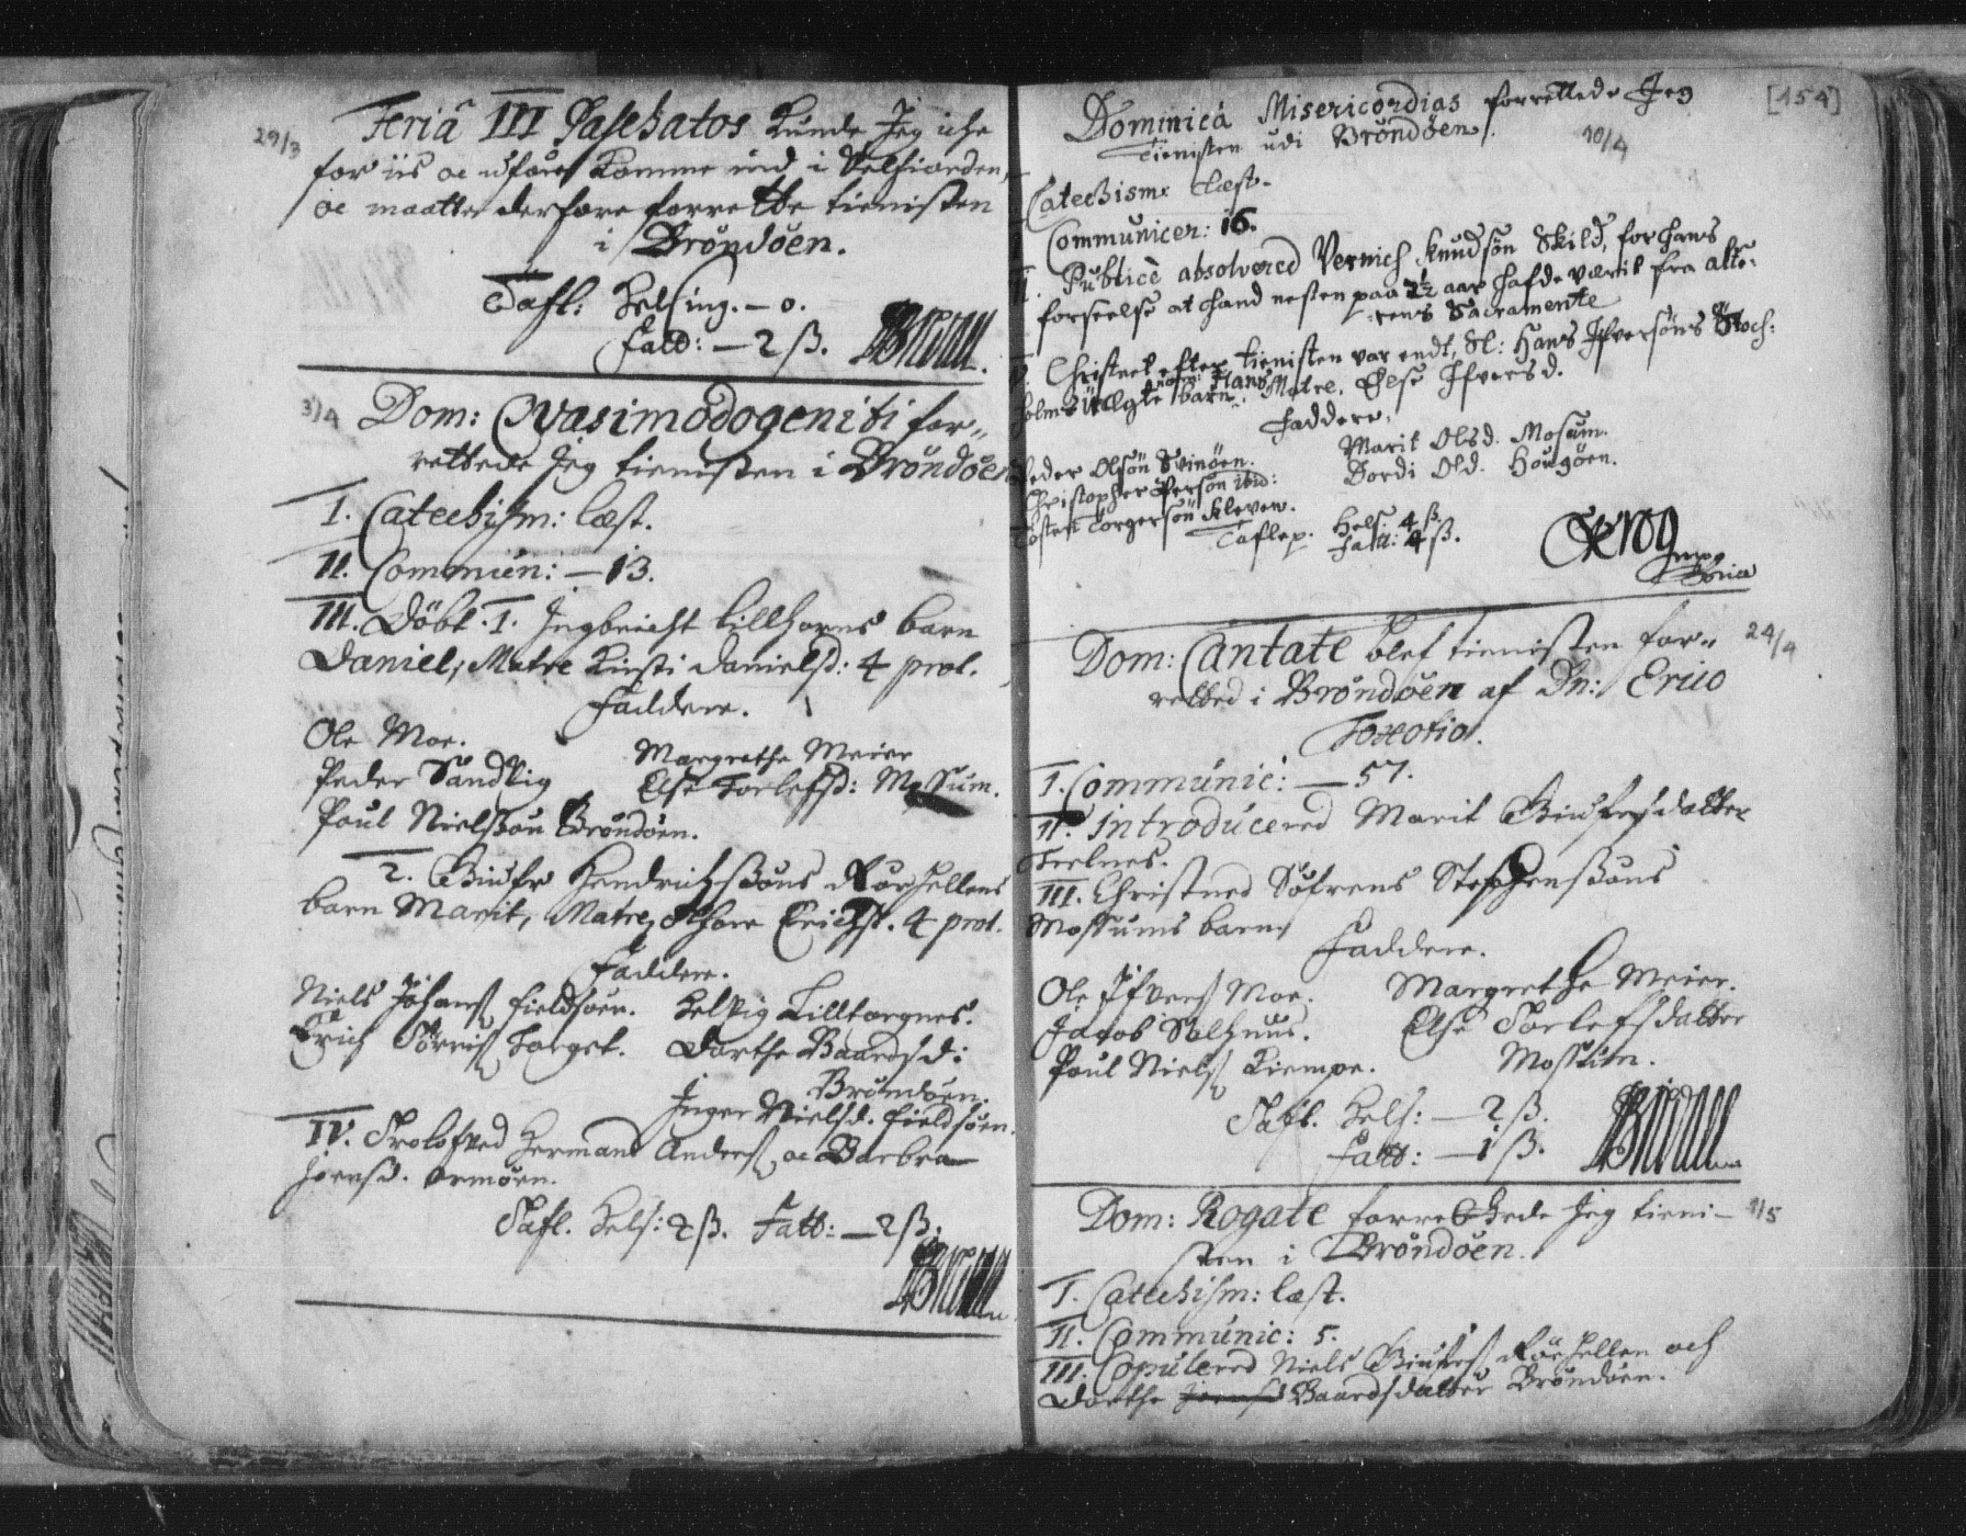 29/3
Feriâ III Paschatos kunde Jeg iche
for iis oc ufore komme ind i Velfiorden,
oc maatte derfore forrette tienisten
i Brøndøen.
Tafl: Helsing. - 0.
Fatt: - 2 ß.
3/4
Dom: Qvasimodogeniti for-
rettede Jeg tienisten i Brøndøen
I. Catechism: læst.
II. Commun: - 13.
III. Døbt. 1. Ingbricht Tillhorns barn
Daniel, Matre Kirsti Danielsd: 4 prol.
Faddere.
Ole Moe.
Peder Sandvig
Poul Nielsøn Brøndøen.
Margrethe Meier
Else Torlefsd: Mossum.
2. Giufr Hendrichssøns Rørhellens
barn Marit, Matre, Thore Erichsd. 4 prol.
Faddere.
Niels Johans fieldsøen.
Erich Sørens Torget.
Helvig Tilltorgnes.
Dorthe Baardsd:
Brøndøen.
Inger Nielsd. fieldsøen.
IV. Trolofved Herman Anders oc Barbra
Joensd. Ormøen.
Tafl. Hels: 2 ß. Fatt: - 2 ß.
[154]
Dominicâ Misericordias forrettede Jeg
Tienisten udi Brøndøen.
10/4
Catechism: læst.
Communicer: 16.
Publicè absolvered Vernich Knudsøn Skild, for hans
forseelse at hand nesten paa 2½ aar hafde værit fra alte-
rens Sacramente
Christnet efter tienisten var endt, Sl: Hans Ifversøns Stoch-
holms uægte barn, nom: Hans, Matre. Else Ifversd.
Faddere.
Peder Olsøn Svinøen.
Christopher Persøn ibid:
Tosten Torgersøn Kleven.
Marit Olsd. Mosum.
Dordi Old. Hougøen.
Taflep. Hels: 4 ß.
Fatt: 4 ß.
24/4
Dom: Cantate blef tienisten for-
retted i Brøndøen af Dn: Erico
Toxotio.
I. Communic: - 57.
II. Introducered Marit Giufrsdatter
Torlnes.
III. Christned Søfrens Stephenssøns
Mossums barn
Faddere.
Ole Ifvers Moe.
Jacob Salhuus.
Poul Niels Kiempe.
Margrethe Meier.
Else Torlefsdatter
Mossum.
Tafl. Hels: - 2 ß.
Fatt: - 1 ß.
1/5
Dom: Rogate forrettede Jeg tieni-
sten i Brøndøen.
I. Catechism: læst.
II. Communic: 5.
III. Copulered Niels Giufrs Rørhellen och
Dorthe Baardsdatter Brøndøen.